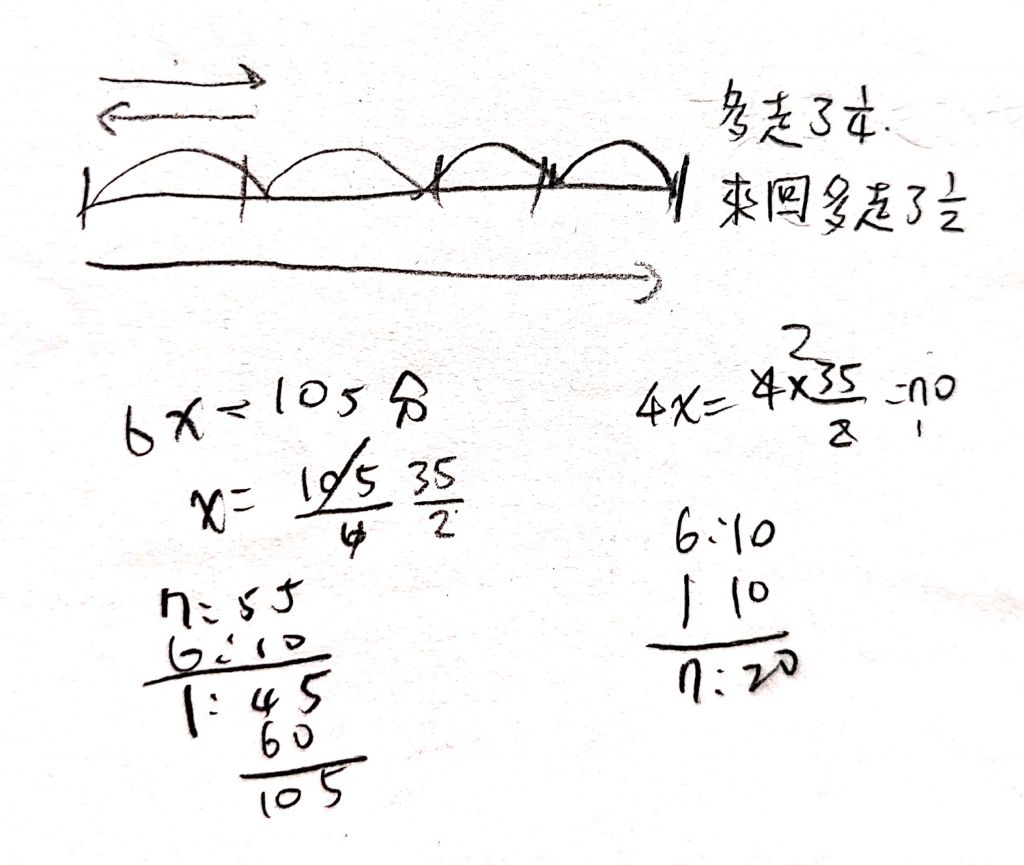 多走了 1/4.
來回多走了 1/2
6x = 105分
x = 105/6 35/2
7:55
6:10
1:45
60
105
2
4x = 4×35/2 = 70/1
6:10
1 10
7:20